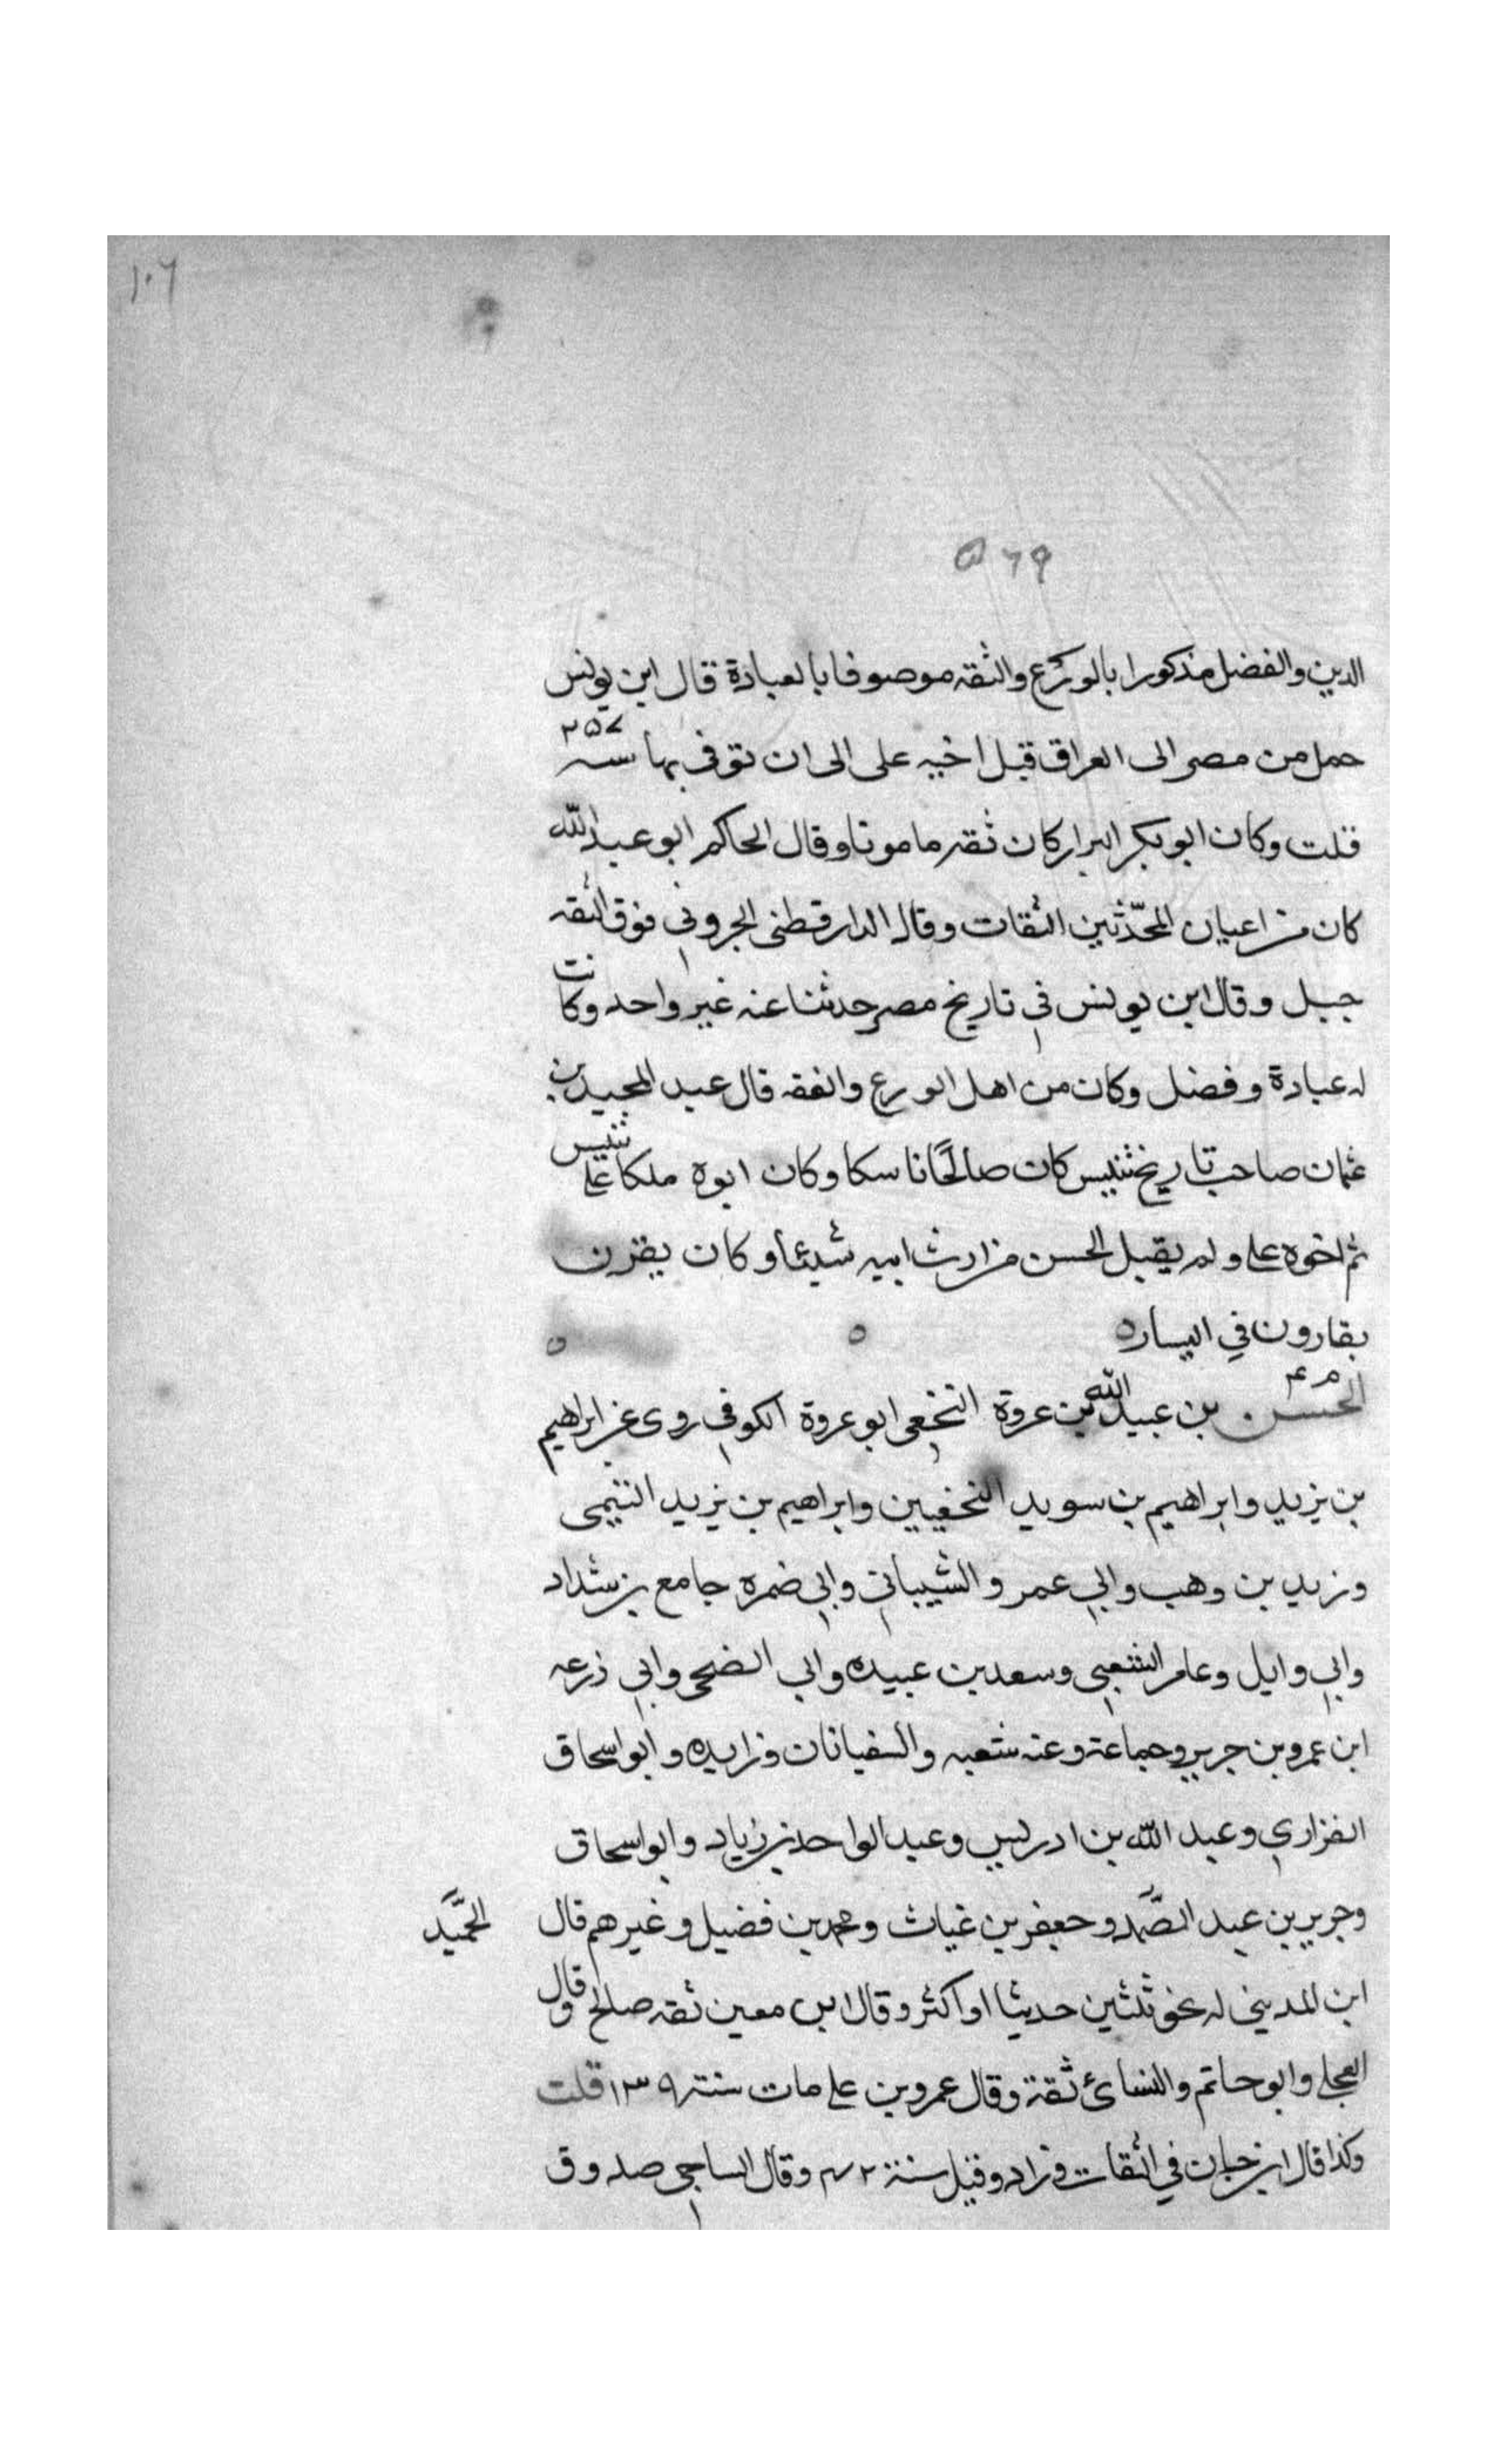 ١٠٦
٥٦٩
الدين والفضل مذكورا بالورع والثقه موصوفا بالعبادة قال ابن يونس
حمل من مصر الى العراق قبل اخيه على الى ان توفى بها سنه ٢٥٧
قلت وكان ابو بكر البزار كان ثقه مامونا وقال الحاكم ابو عبد الله
كان من اعيان المحدّثين الثقات وقال الدارقطنى الجروفى فوق الثقه
جبل وقال ابن يونس في تاريخ مصر حدثنا عنه غير واحد وكانت
له عبادة وفضل وكان من اهل الورع والفقه قال عبد المجيد بن
عثمان صاحب تاريخ تنيس كان صالحًا ناسكا وكان ابوه ملكا على تنيس
ثم اخوه على ولم يقبل الحسن من ارث ابيه شيئا وكان يقرن
بقارون في اليساره ه ه
م ٤
الحسن بن عبيد الله بن عروة النخعى ابو عروة الكوفى روى عن ابراهيم
بن يزيد وابراهيم بن سويد النخعيين وابراهيم بن يزيد التيمى
وزيد بن وهب وابي عمرو الشيبانى وابى ضمره جامع بن شداد
وابى وايل وعامر الشعبى وسعد بن عبيده وابي الضحى وابى ذرعه
ابن عمرو بن جرير وجماعة وعنه شعبه والسفيانان وزايده وابو اسحاق
الفزاري وعبد الله بن ادريس وعبد الواحد بن زياد وابو اسحاق
وجرير بن عبد الصَّمد وحعفر بن غياث ومحمد بن فضيل وغيرهم قال
الحَميد
ابن المديني له نحو ثلثين حديثا او اكثر وقال ابن معين ثقه صالح وقال
العجلي وابو حاتم والنسائ ثقة وقال عمرو بن على مات سنة ١٣٩ قلت
وكذا قال ابن حبان في الثقات وزاد وقيل سنة ٤٢ وقال الساجى صدوق